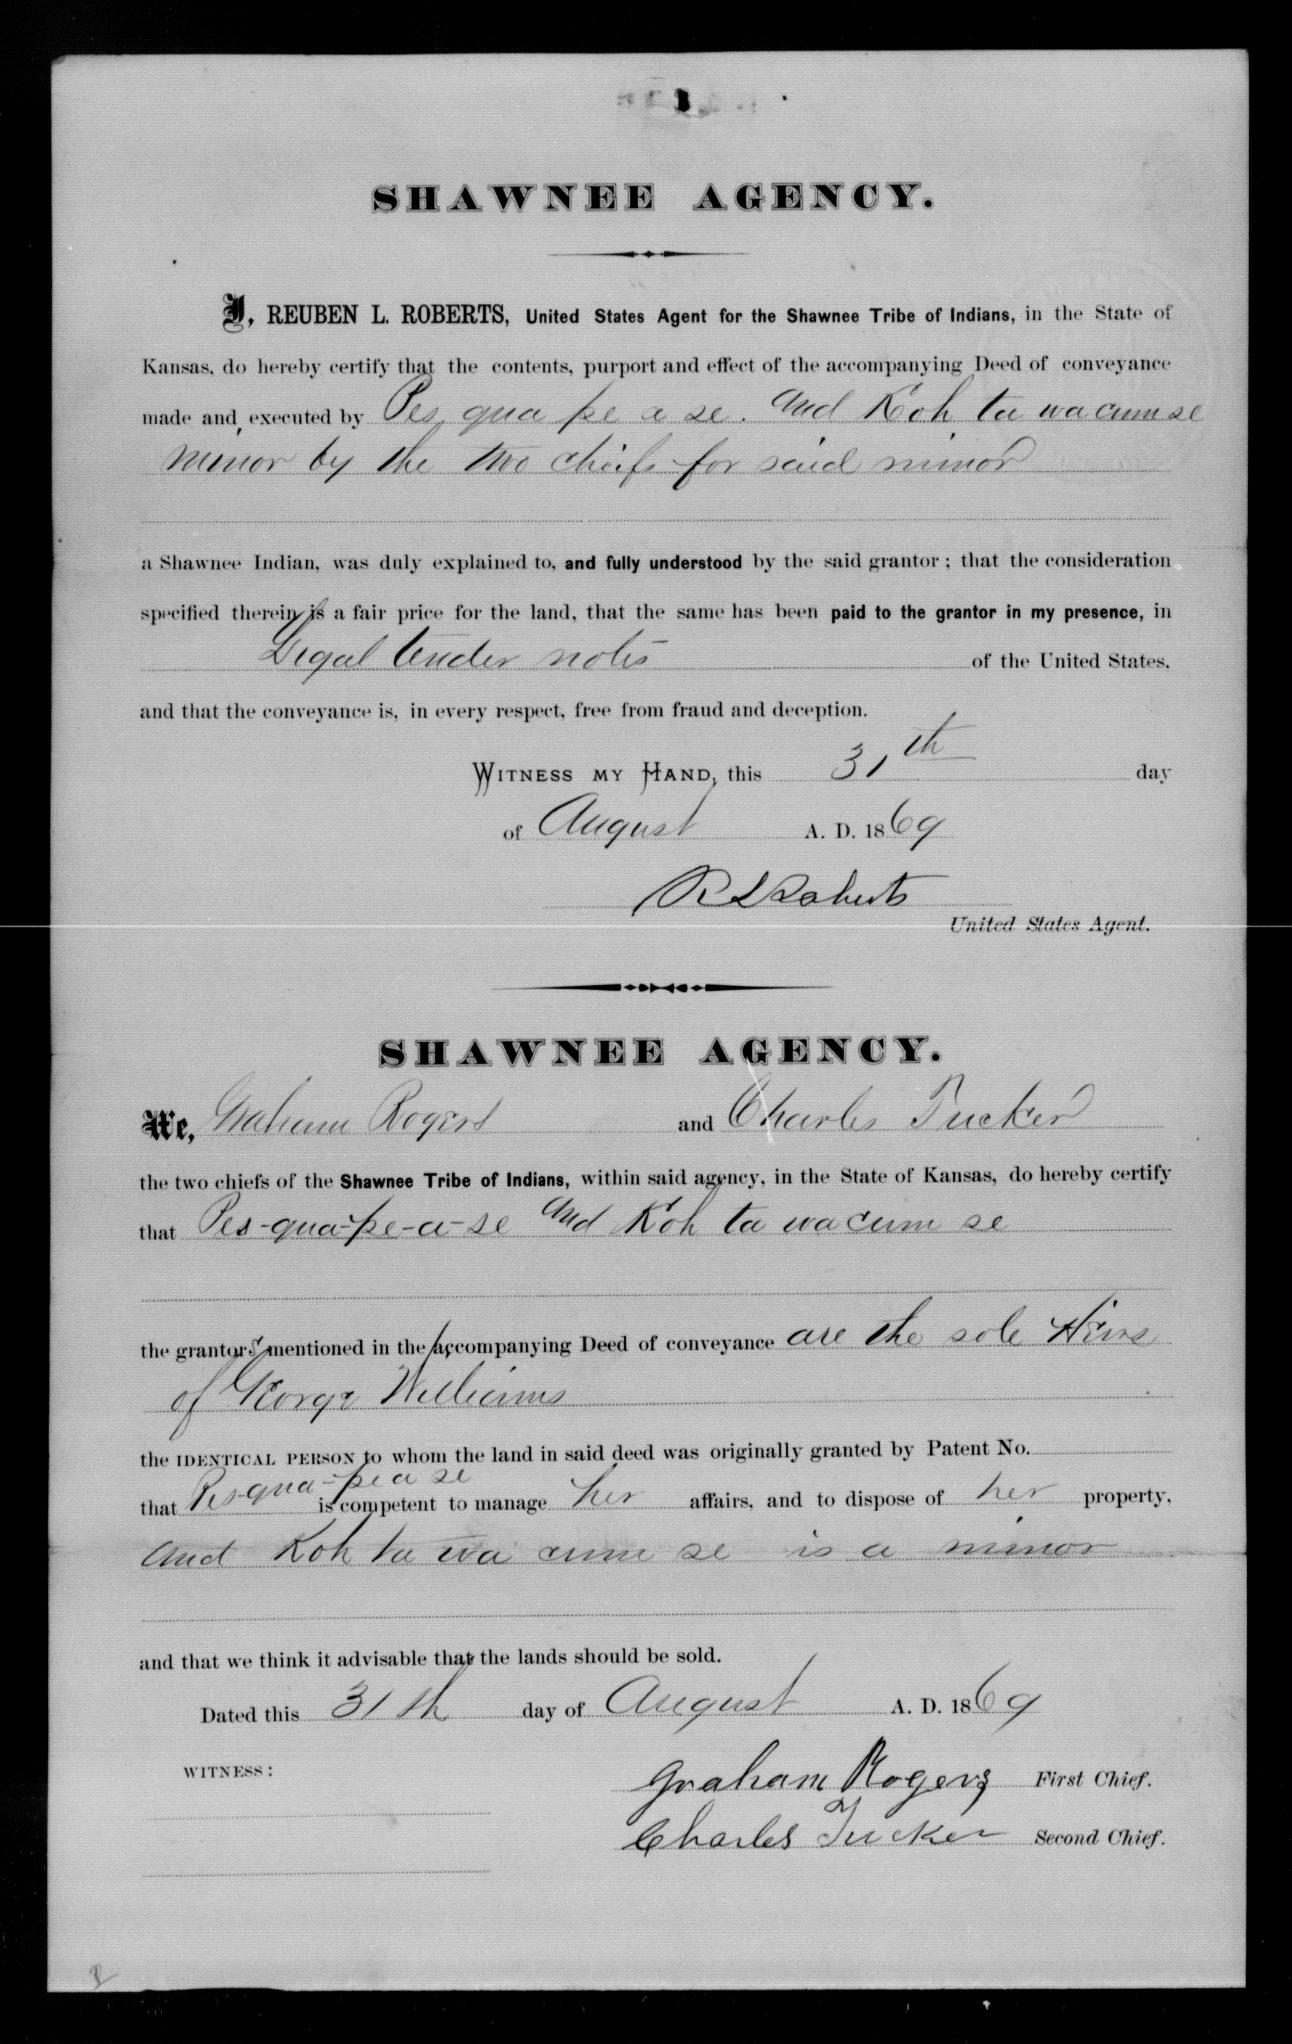 SHAWNEE AGENCY.
I, REUBEN L. ROBERTS, United States Agent for the Shawnee Tribe of Indians, in the State of
Kansas, do hereby certify that the contents, purport and effect of the accompanying Deed of conveyance
made and executed by Pes qua pe a se. And Koh ta wa cum se
minor by the two chiefs for said minor
a Shawnee Indian, was duly explained to, and fully understood by the said grantor; that the consideration
specified therein is a fair price for the land, that the same has been paid to the grantor in my presence, in
Legal tender notes of the United States,
and that the conveyance is, in every respect, free from fraud and deception.
WITNESS MY HAND, this 31th day
of August A. D. 1869
R L Roberts
United States Agent.
SHAWNEE AGENCY.
We, Graham Rogers and Charles Tucker
the two chiefs of the Shawnee Tribe of Indians, within said agency, in the State of Kansas, do hereby certify
that Pes-qua-pe-a-se And Koh ta wa cum se
the grantors mentioned in the accompanying Deed of conveyance are the sole Heirs
of George Williams
the IDENTICAL PERSON to whom the land in said deed was originally granted by Patent No.
that Pes-qua-pe a se is competent to manage her affairs, and to dispose of her property,
And Koh ta wa cum se is a minor
and that we think it advisable that the lands should be sold.
Dated this 31th day of August A. D. 1869
WITNESS:
Graham Rogers First Chief.
Charles Tucker Second Chief.